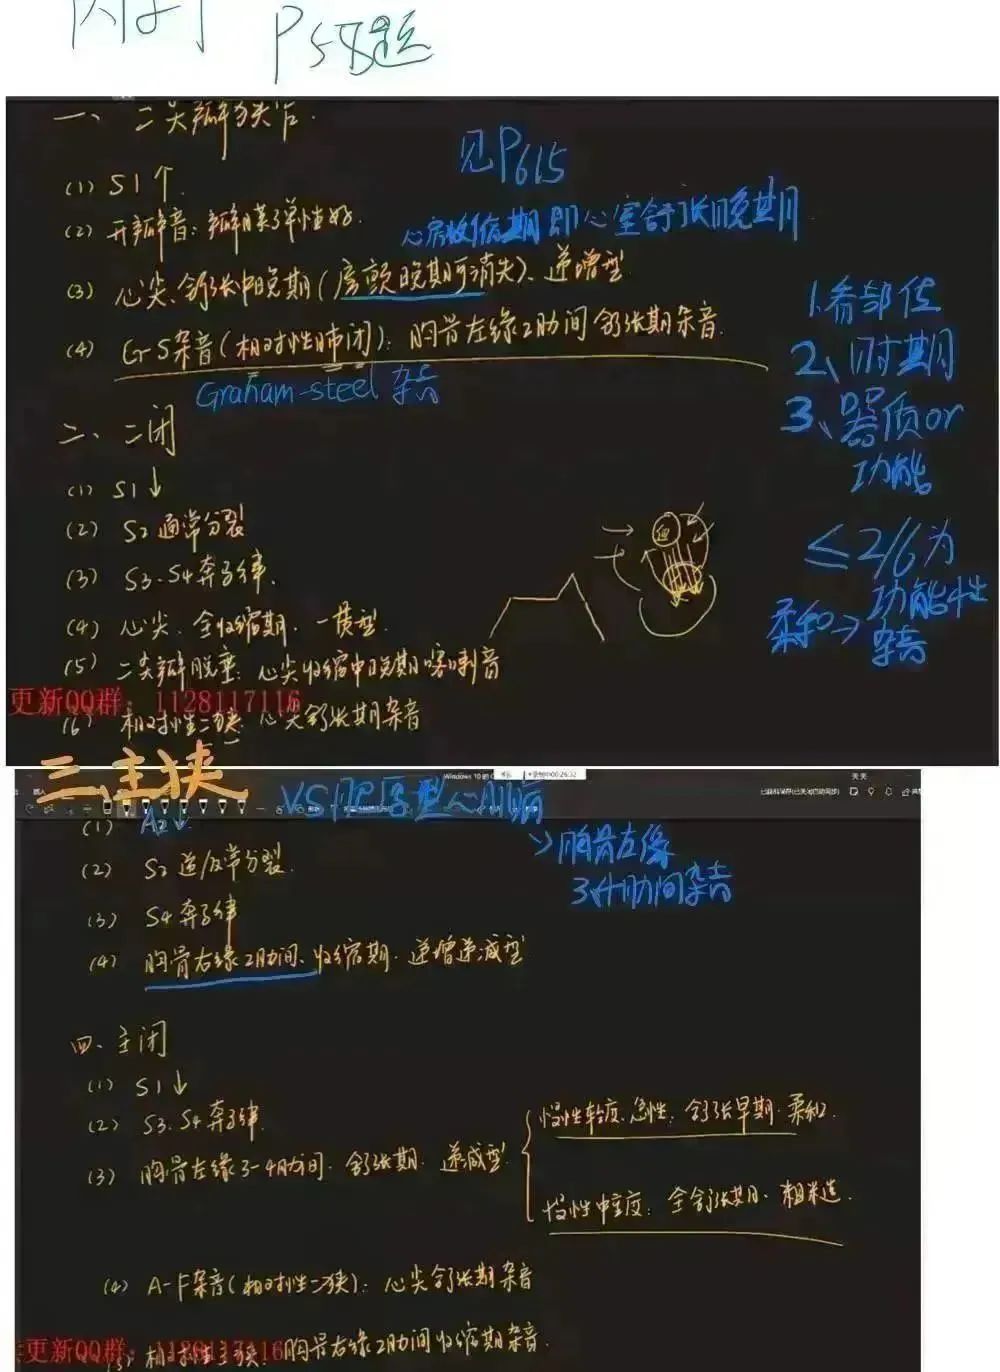 P58题
一、二尖瓣狭窄.
见P615
(1) S1↑
(2) 开瓣音：瓣膜弹性好.
心房收缩期即心室舒张晚期
(3) 心尖、舒张中晚期（房颤晚期可消失）、递增型
(4) G-S杂音（相对性肺闭）：胸骨左缘2肋间舒张期杂音.
Graham-steel 杂音
1.看部位
2、时期
3、器质or
功能
≤2/6为
柔和→功能性
杂音
二、二闭
(1) S1↓
(2) S2通常分裂
(3) S3.S4奔马律.
(4) 心尖、全收缩期、一贯型.
(5) 二尖瓣脱垂：心尖收缩中晚期喀喇音
更新QQ群：1128117116
(6) 相对性二狭：心尖舒张期杂音
三.主狭
Windows 10 的
VS肥厚型心肌病
→胸骨左缘
3、4肋间杂音
(1) A2↓
(2) S2逆反常分裂.
(3) S4奔马律
(4) 胸骨右缘2肋间、收缩期、递增递减型
四、主闭
(1) S1↓
(2) S3.S4奔马律.
(3) 胸骨左缘3-4肋间、舒张期、递减型
慢性轻度、急性：舒张早期、柔和.
慢性中重度：全舒张期、粗糙.
(4) A-F杂音（相对性二狭）：心尖舒张期杂音
更新QQ群：1128117116
(5) 相对性主狭：胸骨右缘2肋间收缩期杂音.